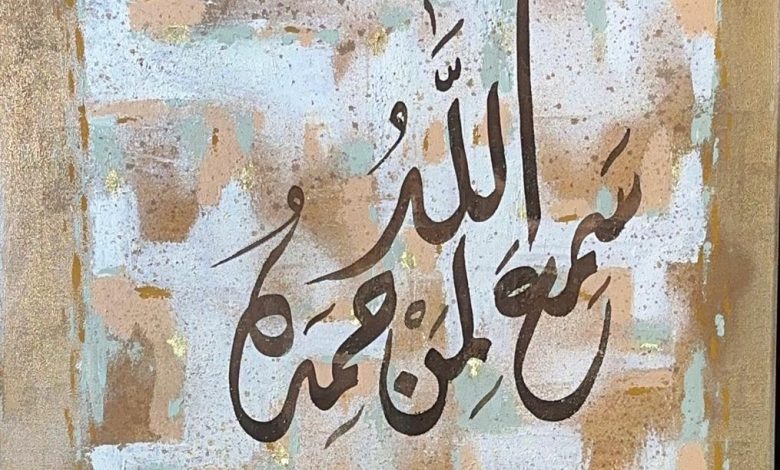 سَمِعَ اللَّهُ لِمَنْ حَمِدَهُ